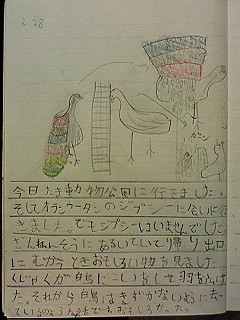 2.28
カモン
今日たま動物公園に行きました。
そしてオランウータンのジプシーに会いに行
きました。でもジプシーはいませんでした
ざんねんそうにあるいていて帰り出口
にむかうときおもしろい物を見ました
くじゃくが白鳥にこいをして羽をひろげ
た。それから白鳥はきずかないように去っ
ているのようすがとてもおもしろかった。